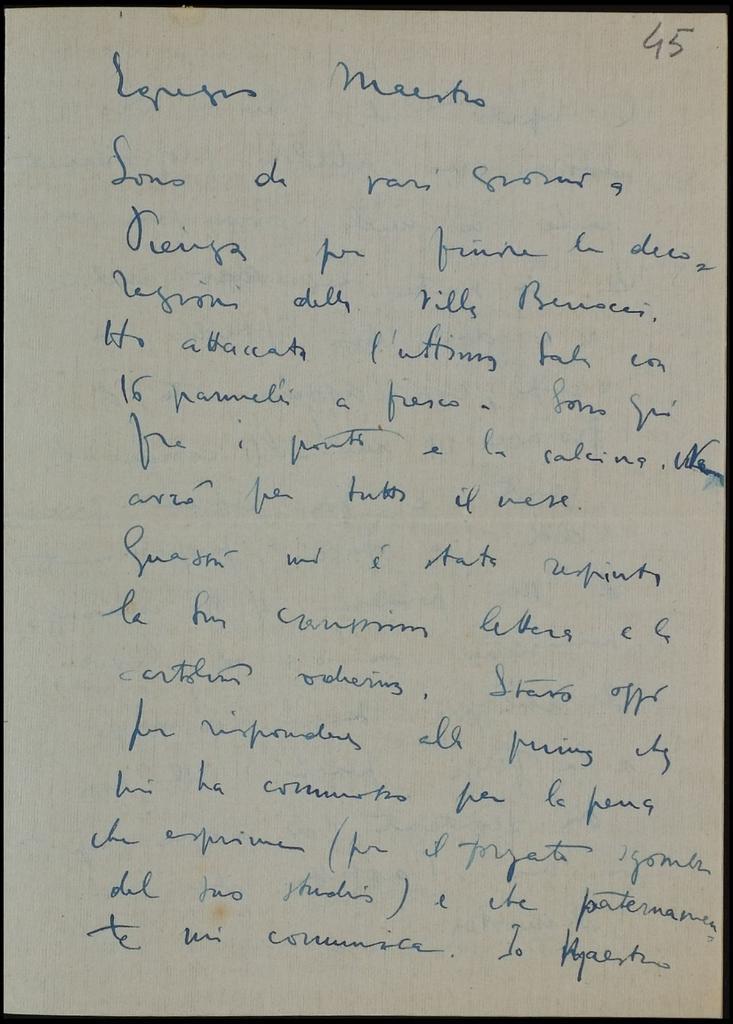 45
Egregio Maestro
Sono da vari giorni a
Pienza per finire le deco=
razioni della villa Benocci.
Ho attaccato l'ultima sala con
16 pannelli a fresco. Sono qui
fra i ponti e la calcina. Ne
avrò per tutto il mese.
Quassù mi è stata respinta
la Sua carissima lettera e la
cartolina odierna. Stavo oggi
per rispondere alla prima che
mi ha commosso per la pena
che esprime (per il forzato sgombro
del suo studio) e che paternamen=
te mi comunica. Io Maestro